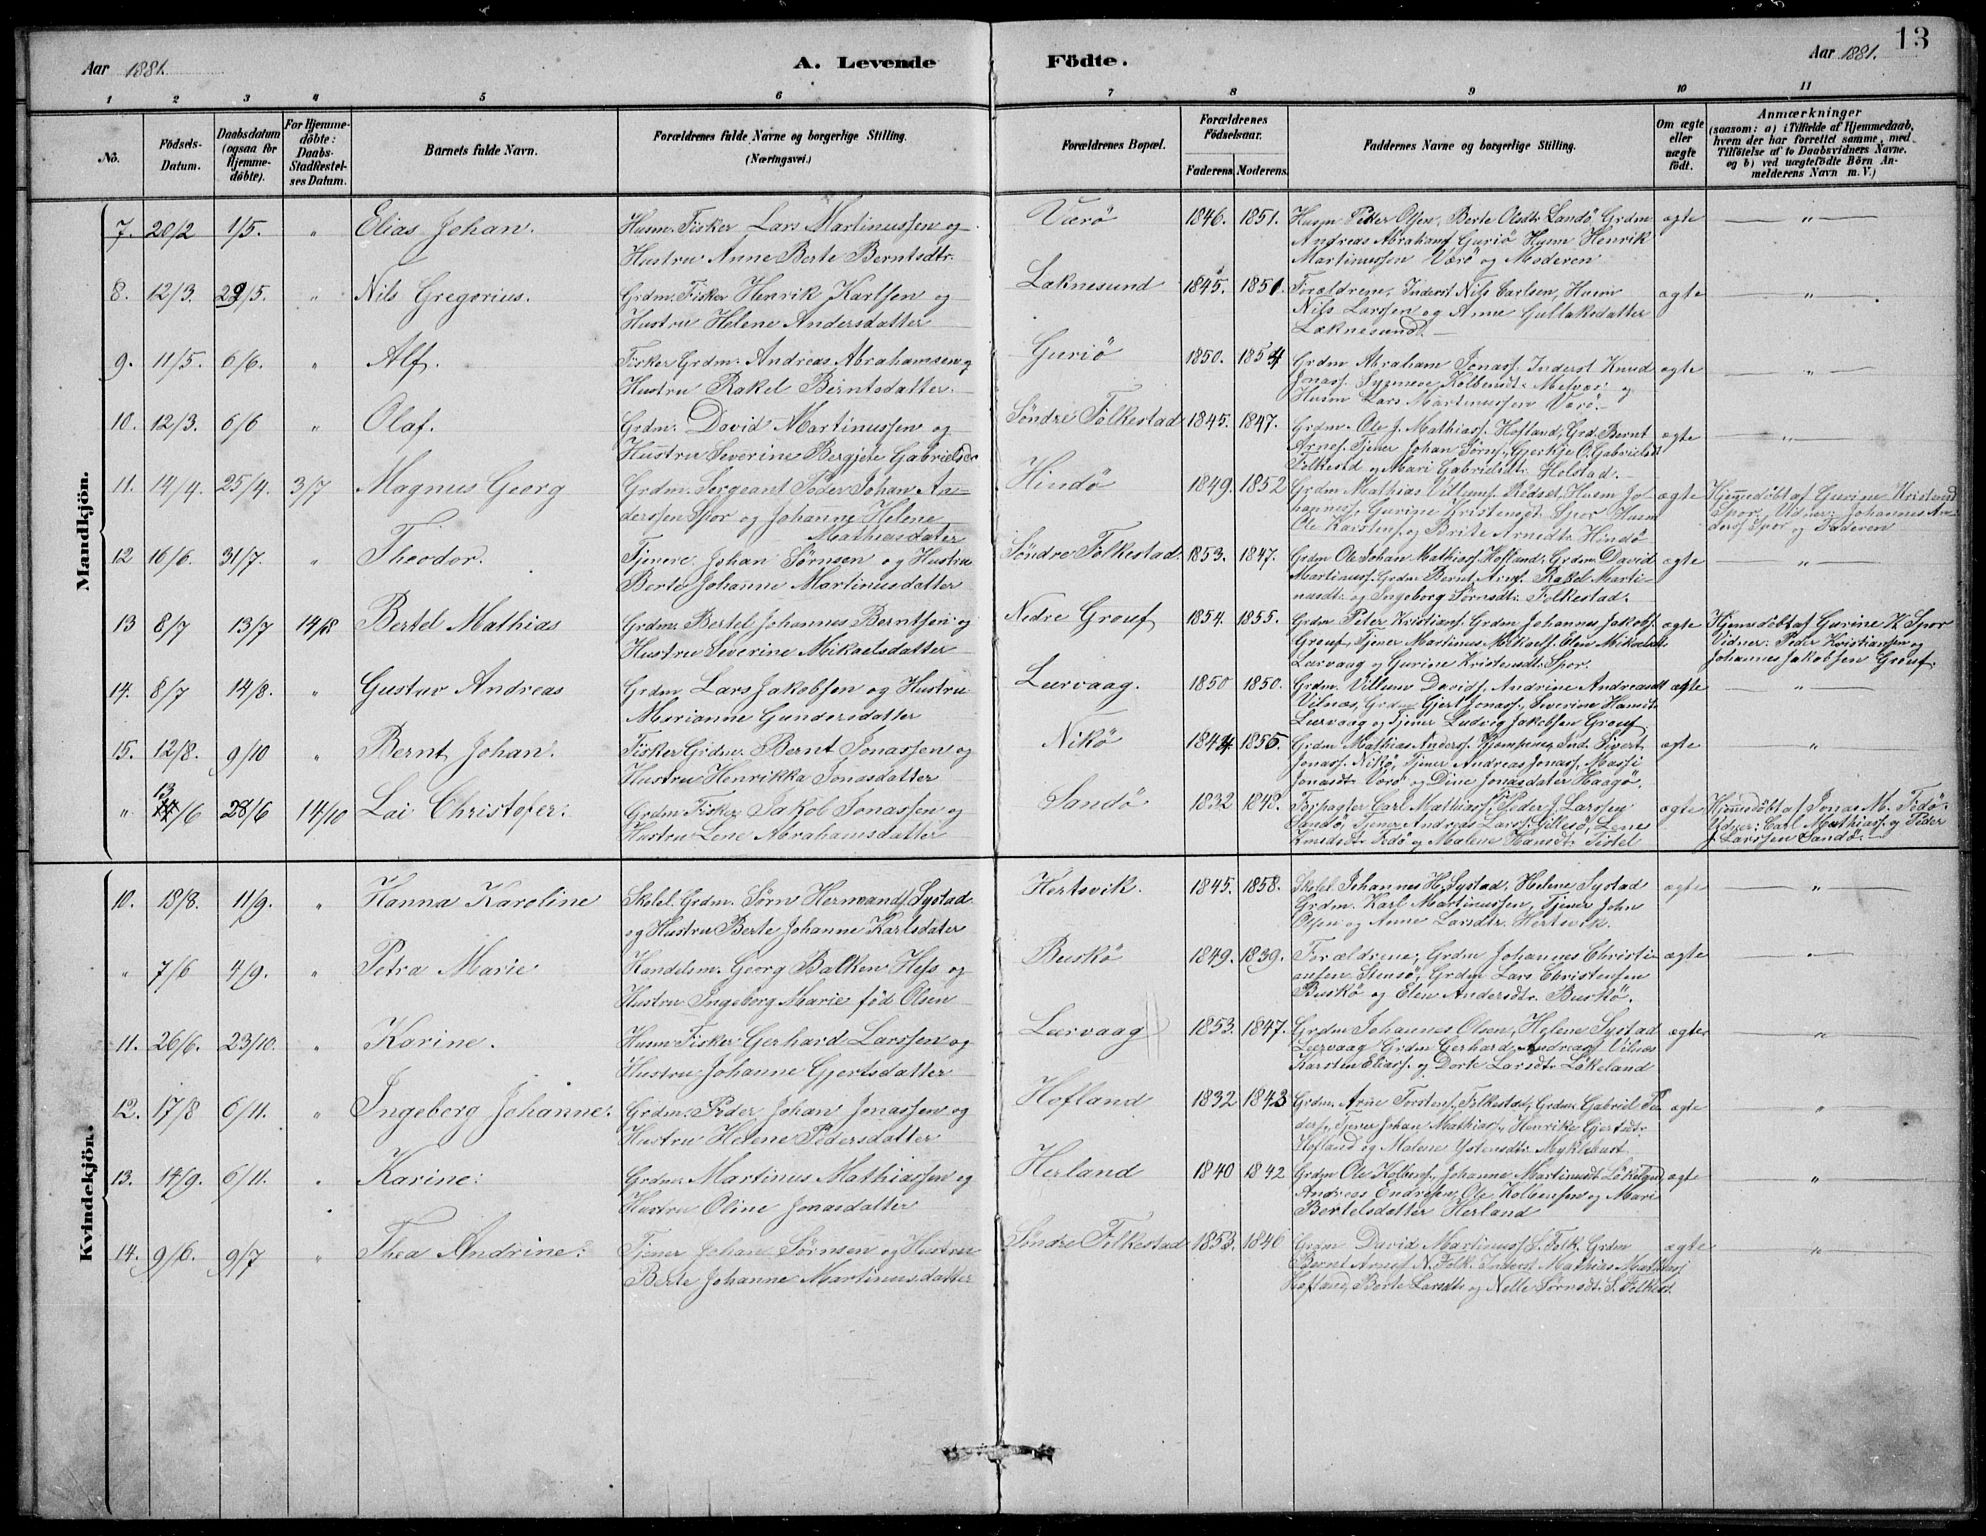 13
Aar 1881.
A. Levende Födte.
Aar 1881.
1 2 3 4 5 6 7 8 9 10 11
No.
Födsels-Datum.
Daabsdatum (ogsaa for Hjemme-döbte).
For Hjemme-döbte: Daabs-Stadfæstel-ses Datum.
Barnets fulde Navn.
Forældrenes fulde Navne og borgerlige Stilling. (Næringsvei.)
Forældrenes Bopæl.
Forældrenes Födselsaar.
Faderens. Moderens.
Faddernes Navne og borgerlige Stilling.
Om ægte eller uægte födt.
Anmærkninger
(saasom: a) i Tilfælde af Hjemmedaab, hvem der har forrettet samme, med Tilföielse af to Daabsvidners Navne. og b) ved uægtefödte Börn An-melderens Navn m. V.)
Mandkjön.
7. 20/2 1/5. " Elias Johan. Husm. Fisker Lars Martinussen og Værö 1846. 1851. Husm Peder Olsen, Berte Olsdtr Landö, Grdm ægte "
Hustru Anne Berte Berntsdtr. Andreas Abrahams Guriö Husm Henrik
Martinussen Værö og Moderen
8. 12/3. 29/5. " Nils Gregorius. Grdm. Fisker Henrik Karlsen og Laknesund 1845. 1851. Forældrene, Inderst Nils Carlsen, Husm ægte "
Hustru Helene Andersdatter Nils Larssen og Anne Gullaksdatter
Laknesund.
9. 11/5. 6/6. " Alf. Fisker Grdm. Andreas Abrahamsen og Guriö 1850. 1854 Grdm Abraham Jonass. Inderst Knud ægte "
Hustru Rakel Berntsdatter. Jonass. Kolbensdt. og
Husm Lars Martinussen Værö.
10. 12/3. 6/6 " Olaf. Grdm. David Martinussen og Söndre Folkestad 1845. 1847. Grdm. Ole J. Mathiass. Hofland, Grd. Bernt ægte "
Hustru Severine Bergjete Gabrielsdr Arnes. Tjener Johan Sörns., O. Gabrielsdt
Folkestd og Mari Gabrielsdt. Helstad.
11. 14/4. 25/4. 3/7 Magnus Georg Grdm. Sergeant Peder Johan An- Hindö 1849. 1852 Grdm Mathias Villums. Rödset, Husm Jo- ægte Hjemmedöbt af Gurine Kristensd
derssen Spor og Johanne Helene hanness, Gurine Kristensdt. Spor Husm Spor, Vidner: Johannes An-
Mathiasdater Ole Karstens. og Brite Arnedt. Hindö derss Spor og Faderen
12 16/6. 31/7. " Theodor. Tjener Johan Sörnsen og Hustru Söndre Folkestad. 1853. 1847. Grdm Ole Johan Mathiass. Hofland, Grdm David ægte "
Berte Johanne Martinusdatter Martinuss. Grdm Bernt Arns. Rakel Marti-
nusdt. og Ingeborg Sörnsdt. Folkestad.
13 8/7 13/7 14/8 Bertel Mathias Grdm. Bertel Johannes Berntsen og Nedre Grouf 1854. 1855. Grdm Peter Kristians. Grdm Johannes Jakobs. ægte Hjemmedöbt af Gurine K Spor
Hustru Severine Mikaelsdatter Grouf, Tjener Martinus Mikaels. Elen Mikaelsdt Vidner: Peder Kristianssen og
Lærvaag og Gurine Kristensdt. Spor. Johannes Jakobsen Grouf.
14. 8/7 14/8. " Gustav Andreas Grdm. Lars Jakobsen og Hustru Lærvaag. 1850 1850. Grdm. Villum Davids, Andrine Andreasdt ægte "
Marianne Gundersdatter Vilnæs, Grdm Gjert Jonass., Severine Hansdt.
Lærvaag og Tjener Ludvig Jakobsen Grouf.
15. 12/8. 9/10 " Bernt Johan. Fisker Grdm. Bernt Jonassen og Nikö 1844 1856. Grdm Mathias Anderss. Ind. Sivert ægte "
Hustru Henrikka Jonasdatter Jonass. Nikö, Tjener Andreas Jonass, Massi
Jonasdt. Værö og Dine Jonasdater Haagö.
" 13/6 28/6 14/10 Lai Christofer: Grdm Fisker Jakob Jonassen og Sandö 1832 1848. Carl Mathiass. Peder J. Larssen ægte Hjemmedöbt af Jonas M. Fedö.
Hustru Lene Abrahamsdatter Sandö, Tjener Andreas Larss. Gillesö, Lene Vidner: Carl Mathiass. og Peder
Knudsdt. Fedö og Malene Hansdt. Tistel J. Larssen Sandö.
Kvindekjön.
10. 18/8. 11/9. " Hanna Karoline Skolel. Grdm. Sörn Hermands. Systad Hertsvik. 1845. 1858. Skolel. Johannes H. Systad, Helene Systad ægte "
og Hustru Berte Johanne Karlsdater Grdm. Karl Martinussen, Tjener John
Olsen og Anne Larsdtr. Hertsvik.
" 7/6 4/9. " Petra Marie Handelsm. Georg Balken Hess og Buskö 1849. 1839. Forældrene, Grdm Johannes Christi- ægte "
Hustru Ingeborg Marie föd Olsen ansen Stensö, Grdm Lars Christensen
Buskö og Elen Andersdt. Buskö.
11. 26/6. 23/10. " Karine. Husm Fisker Gerhard Larssen og Lærvaag 1853. 1847. Grdm Johannes Olsen, Helene Systad ægte "
Hustru Johanne Gjertsdatter Lærvaag Grdm Gerhard Andreass. Vilnæs
Karsten Eliass. og Dorte Larsdt. Lökeland
12. 17/8 6/11. " Ingeborg Johanne. Grdm. Peder Johan Jonassen og Hofland 1832 1843 Grdm. Arne Torstens. Folkestad, Grdm. Gabriel Pe- ægte "
Hustru Helene Pedersdatter ders., Tjener Johan Mathiass., Henrike Gjertsdt.
Hofland og Malene Ystensdt. Myklebust
13. 14/9. 6/11. " Karine: Grdm. Martinus Mathiassen og Herland 1840 1842 Grdm Ole Kolbens., Johanne Martinusdt Lökeland ægte "
Hustru Oline Jonasdatter Andreas Endresen, Ole Kolbensen og Mari
Bertelsdatter Herland
14. 9/6. 9/7 " Thea Andrine: Tjener Johan Sörnsen og Hustru Söndre Folkestad 1853. 1846 Grdm David Martinuss. S. Folk. Grdm ægte "
Berte Johanne Martinusdatter Bernt Arness N. Folk. Inderst Mathias Mathiass.
Hofland, Berte Larsdt. og Nelle Sörnsdt. S. Folkest.